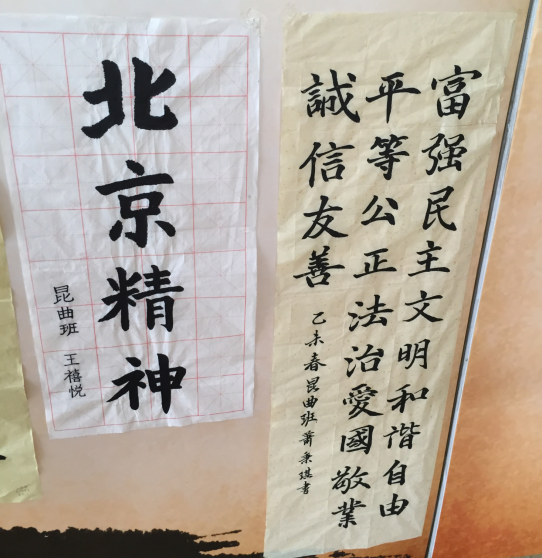 北京精神
昆曲班 王禧悦
富强民主文明和谐自由
平等公正法治愛國敬業
誠信友善
乙未春昆曲班書